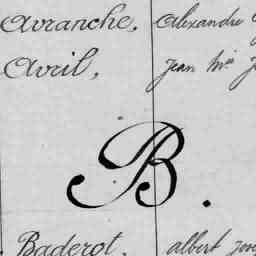 Avranche, Alexandre
Avril, Jean Mie J
B.
Baderot, albert